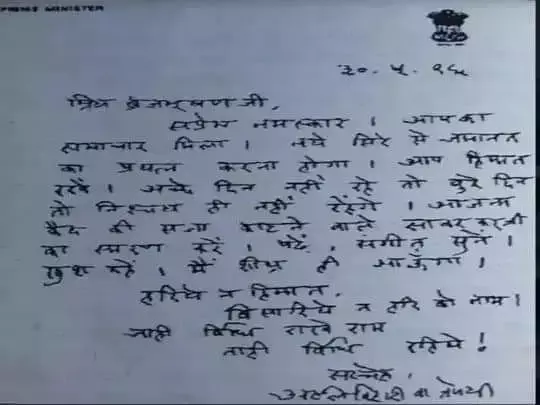 PRIME MINISTER
३०.५.९६
प्रिय ब्रजभूषण जी,
सप्रेम नमस्कार । आपका
समाचार मिला । नये सिरे से जमानत
का प्रयत्न करना होगा । आप हिम्मत
रखें । अच्छे दिन नहीं रहे तो बुरे दिन
तो निश्चय ही नहीं रहेंगे । आजन्म
कैद की सजा काटने वाले सावरकरजी
का स्मरण करें । पढ़ें । संगीत सुनें ।
खुश रहें । मैं शीघ्र ही आऊँगा ।
हारिये न हिम्मत,
बिसारिये न हरि को नाम ।
जाही विधि राखे राम
ताही विधि रहिये !
सस्नेह,
अटल बिहारी वाजपेयी